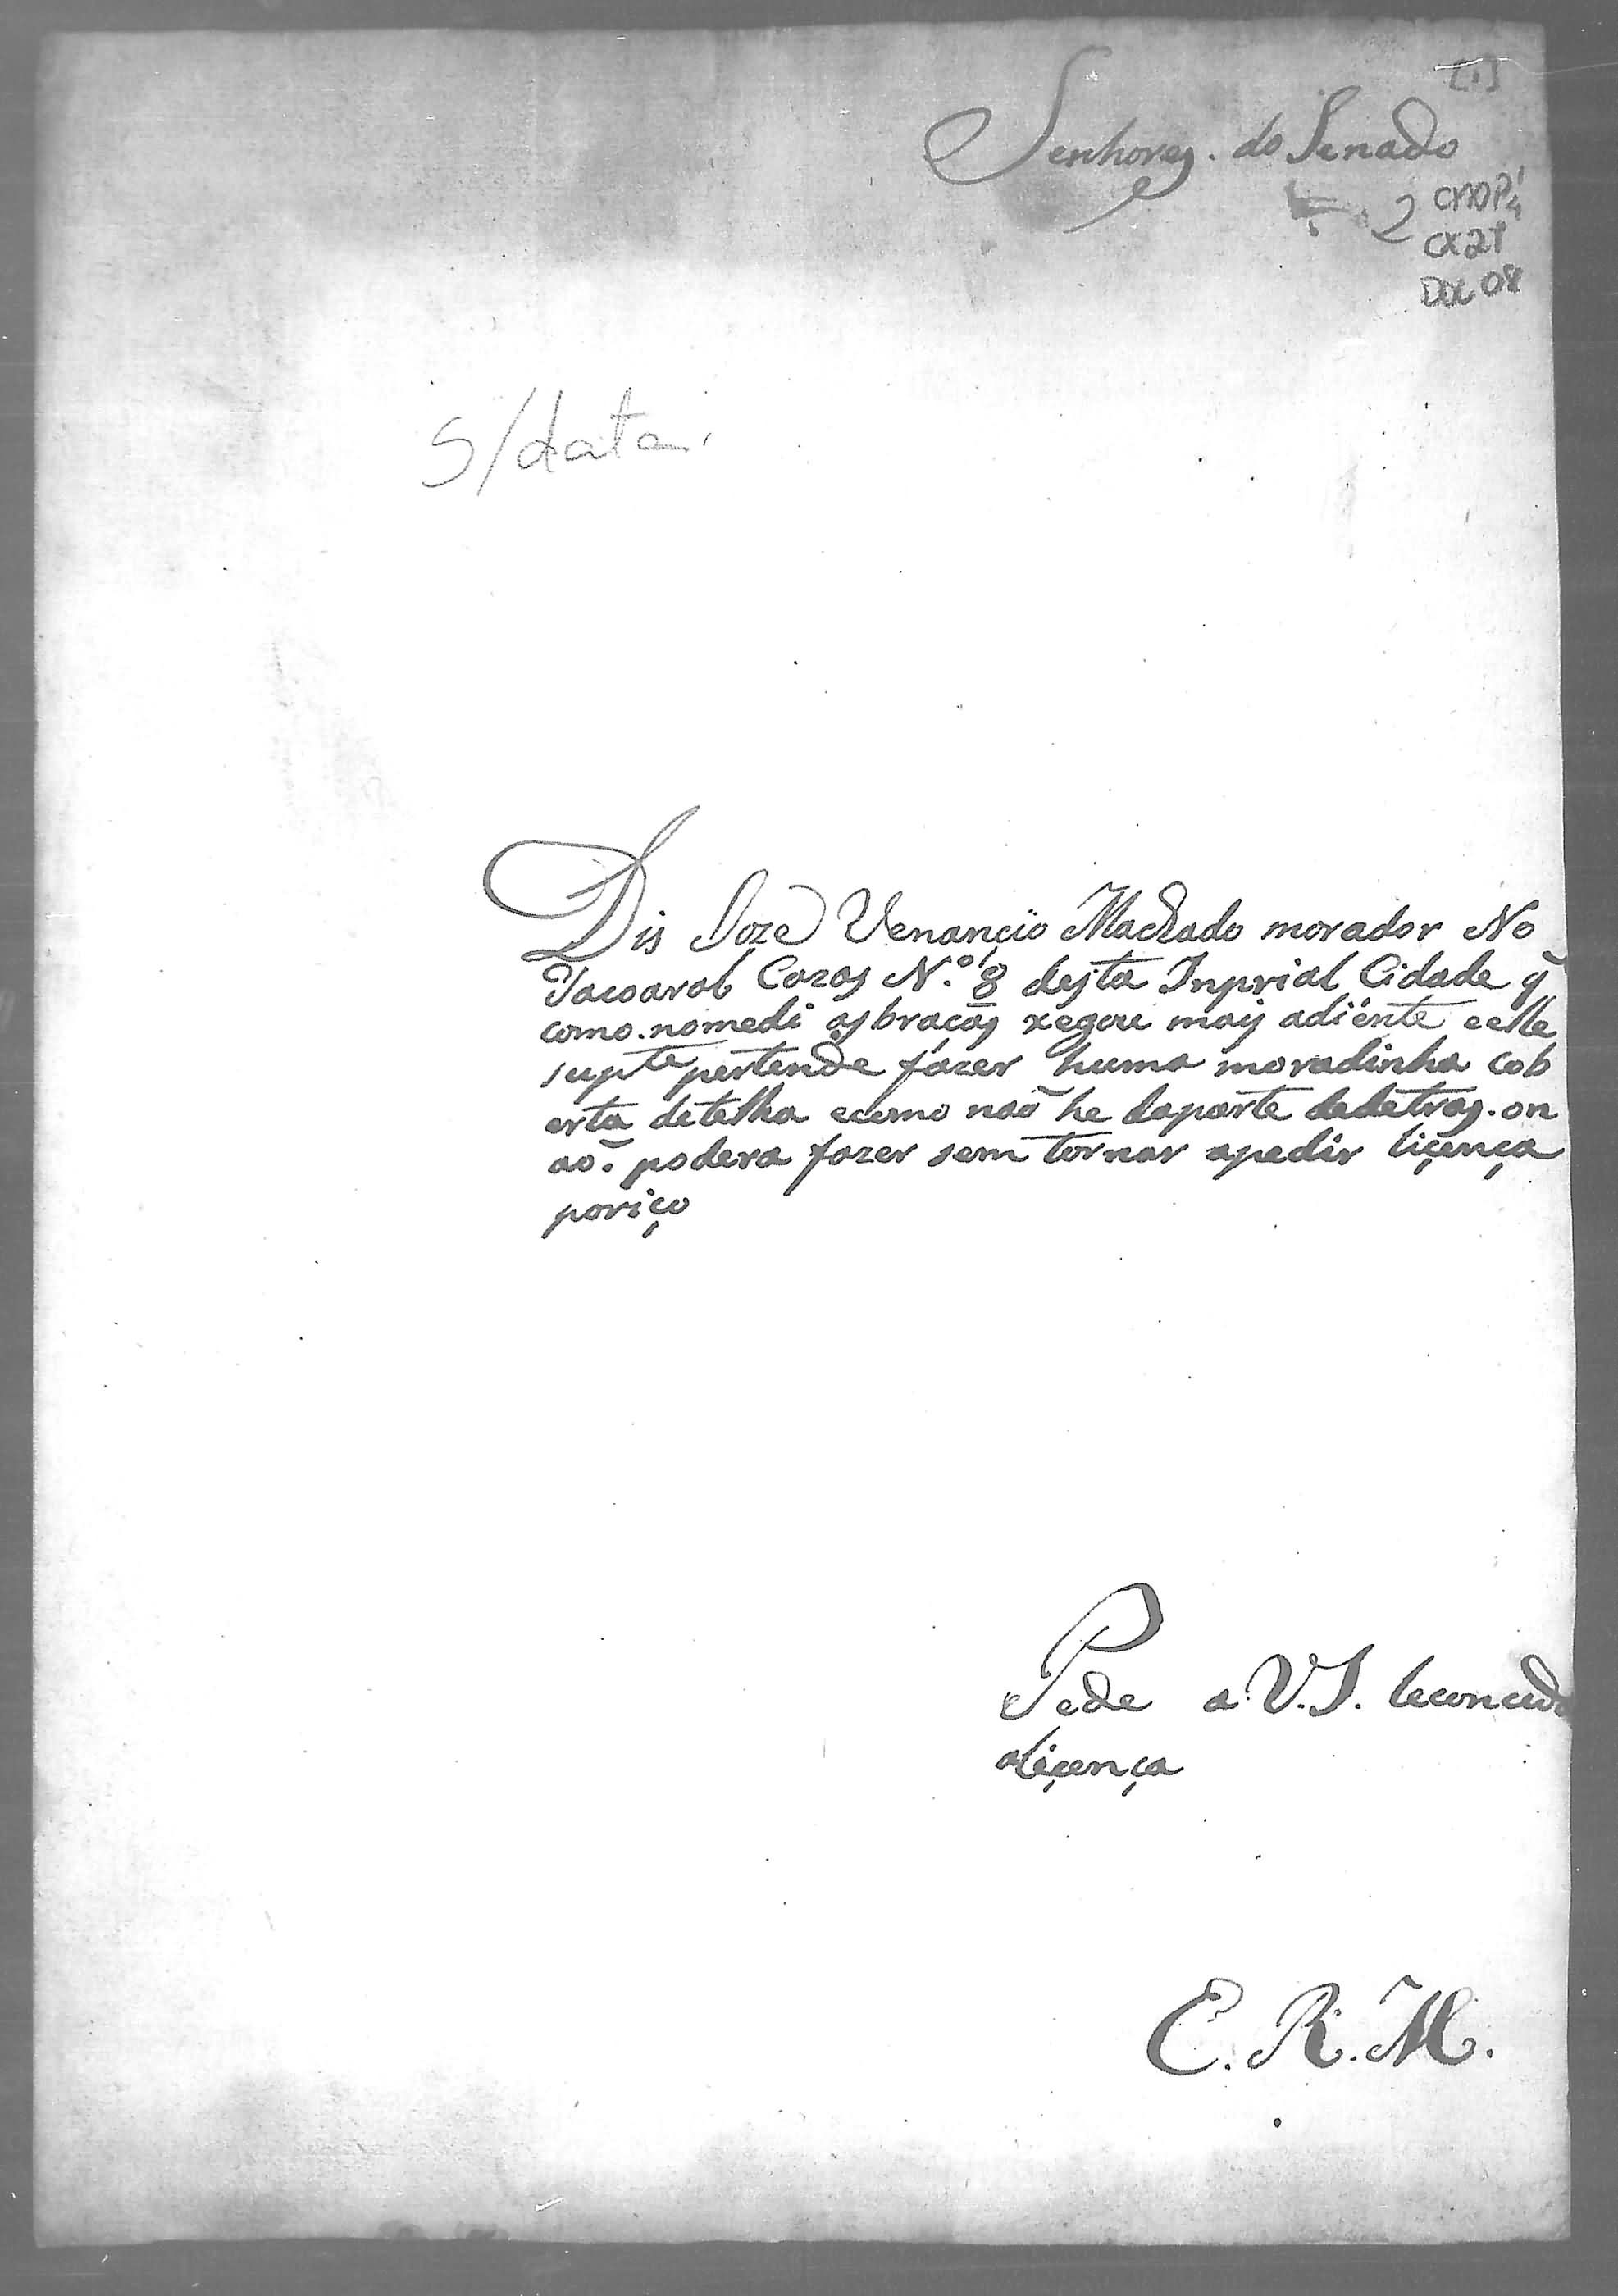 [1]
Senhores. do Senado
2 CMOP
CX 21
DOC 08
S/data.
Dis Joze Venançio Machado morador No
Tacoaral Cazas N.º 8 desta Inprial Cidade q̃
como. nomedi as braças xegou mais adiente eelle
supte pertende fazer huma moradinha cob
erta detelha ecomo naõ he daparte dedetras. on
aõ. podera fazer sem tornar apedir liçença
poriço
Pede a V.S. leconceda
aliçença
E. R. M.